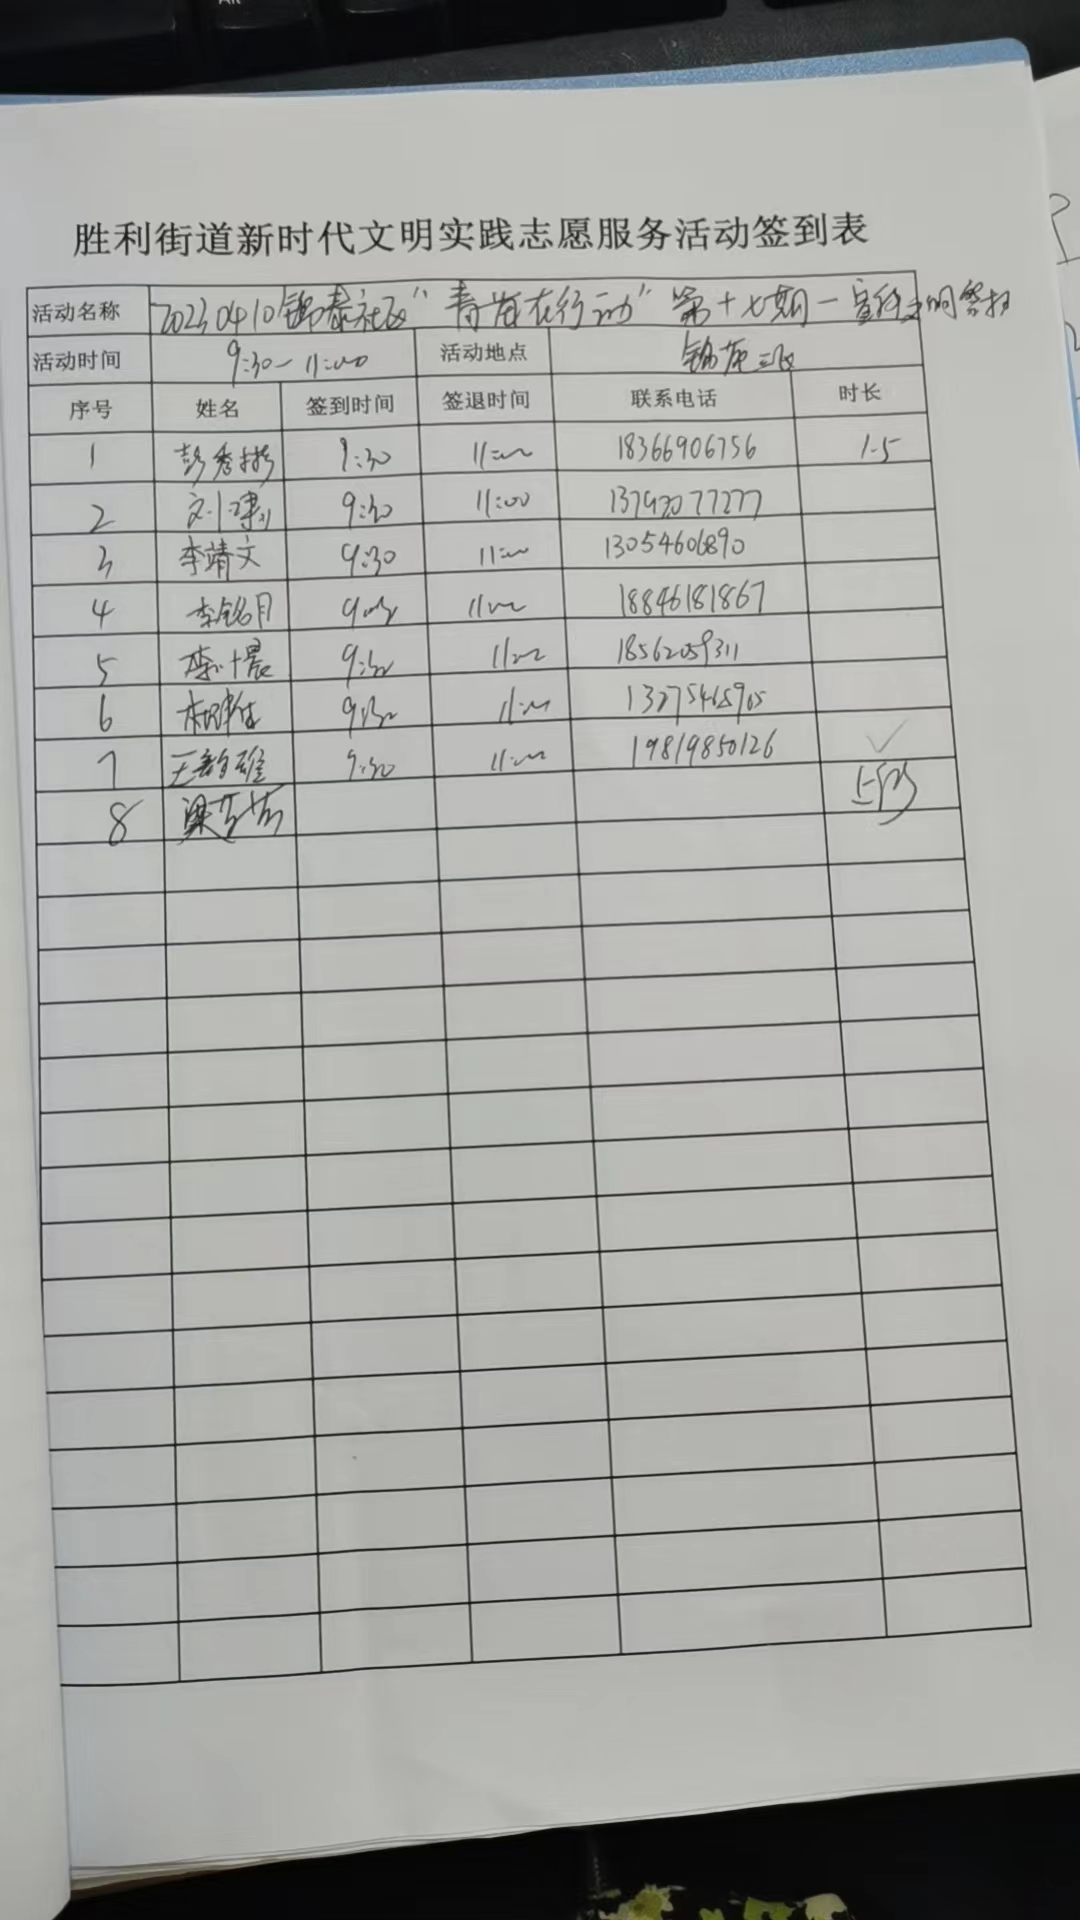 胜利街道新时代文明实践志愿服务活动签到表
活动名称 20230410锦泰社区"青苗在行动"第十七期一宣传文明祭扫
活动时间 9:30-11:00 活动地点 锦苑三区
序号 姓名 签到时间 签退时间 联系电话 时长
1 彭秀彬 9:30 11:00 18366906756 1.5
2 9:30 11:00 13792077277
3 李靖文 9:30 11:00 13054606890
4 李铭月 9:30 11:00 18846181867
5 9:30 11:00 18562059311
6 9:30 11:00 13275465905
7 王韵雅 9:30 11:00 19819850126 ✓
8 梁